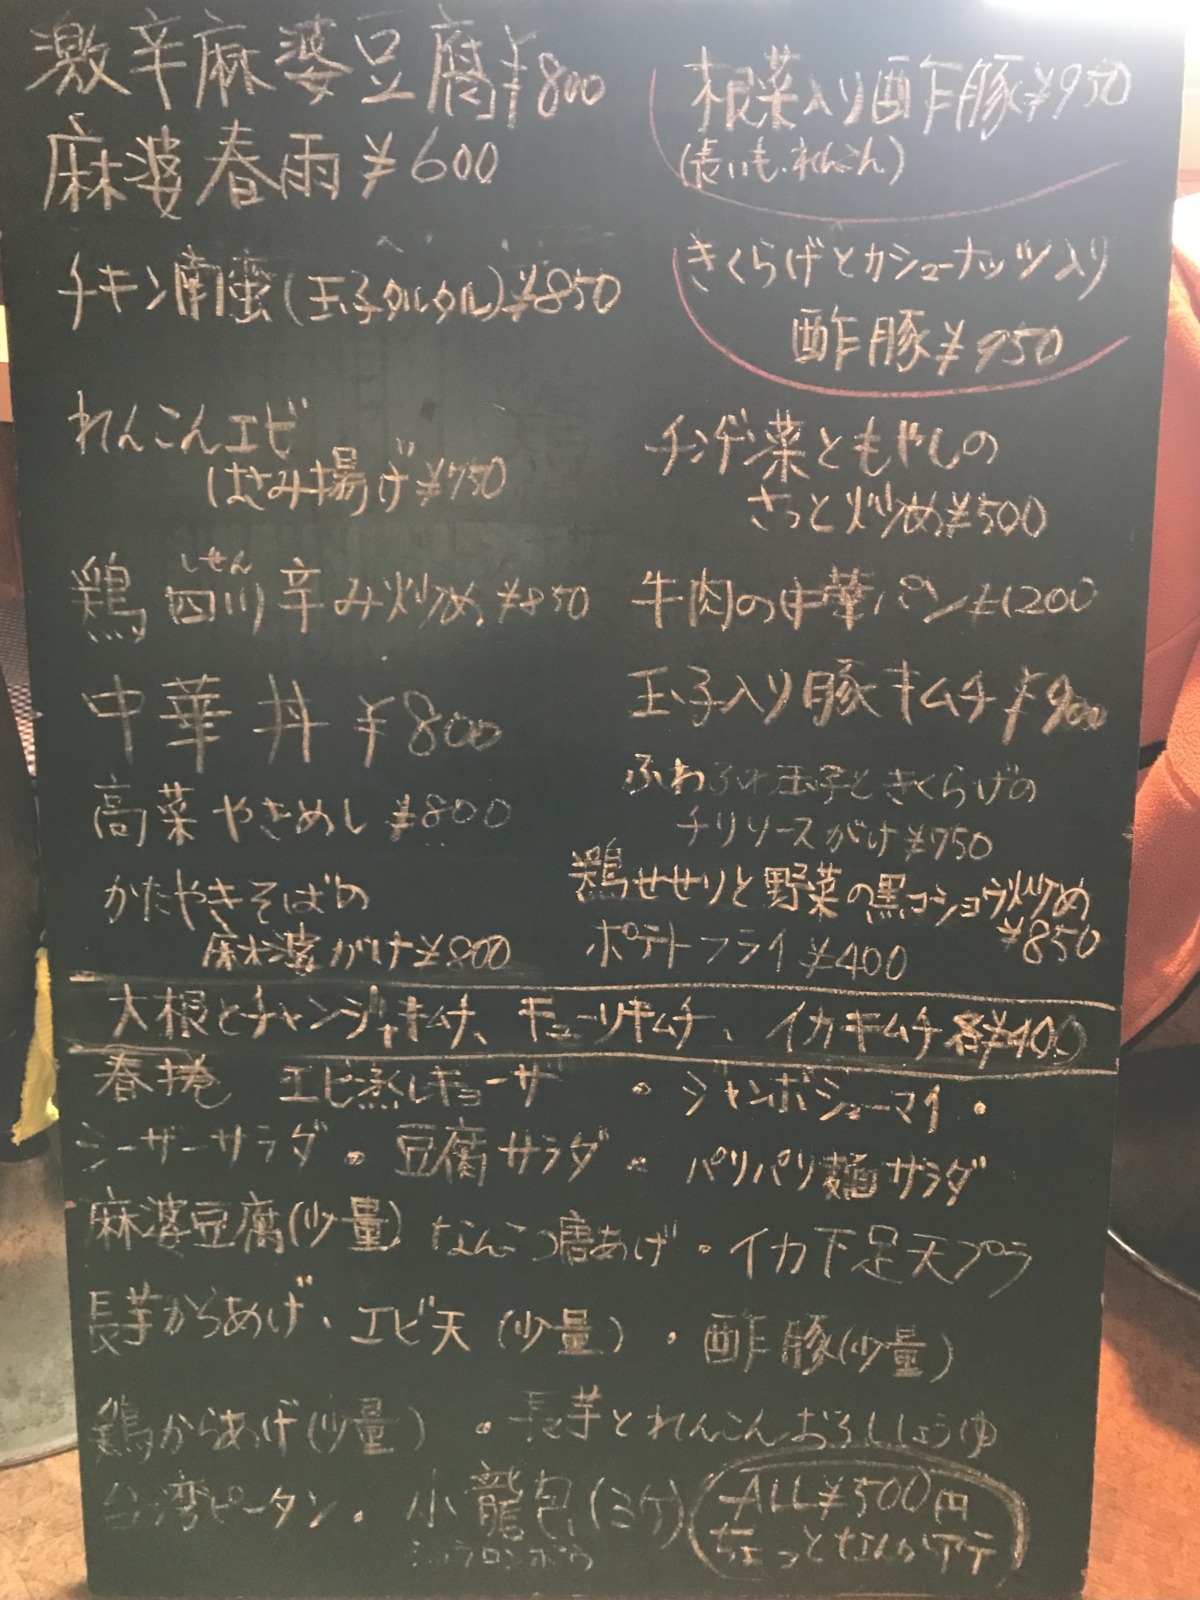 激辛麻婆豆腐¥800
麻婆春雨¥600
チキン南蛮(玉子タルタル)¥850
れんこんエビ
はさみ揚げ¥750
鶏四川辛み炒め¥850
しせん
中華丼¥800
高菜やきめし¥800
かたやきそばの
麻婆がけ¥800
根菜入り酢豚¥950
(長いも・れんこん)
きくらげとカシューナッツ入り
酢豚¥950
チンゲン菜ともやしの
さっと炒め¥500
牛肉の中華パン¥1200
玉子入り豚キムチ¥900
ふわふわ玉子ときくらげの
チリソースがけ¥750
鶏せせりと野菜の黒コショウ炒め
¥850
ポテトフライ¥400
大根とチャンジャキムチ、キューリキムチ、イカキムチ各¥400
春捲 エビ蒸しギョーザ ・ジャンボシューマイ・
シーザーサラダ・豆腐サラダ・パリパリ麺サラダ
麻婆豆腐(少量) なんこつ唐あげ・イカ下足天プラ
長芋からあげ・エビ天(少量)・酢豚(少量)
鶏からあげ(少量)・長芋とれんこんおろししょうゆ
台湾ピータン・小龍包(3ケ)
ショウロンポウ
ALL¥500円
ちょっとなんかアテ